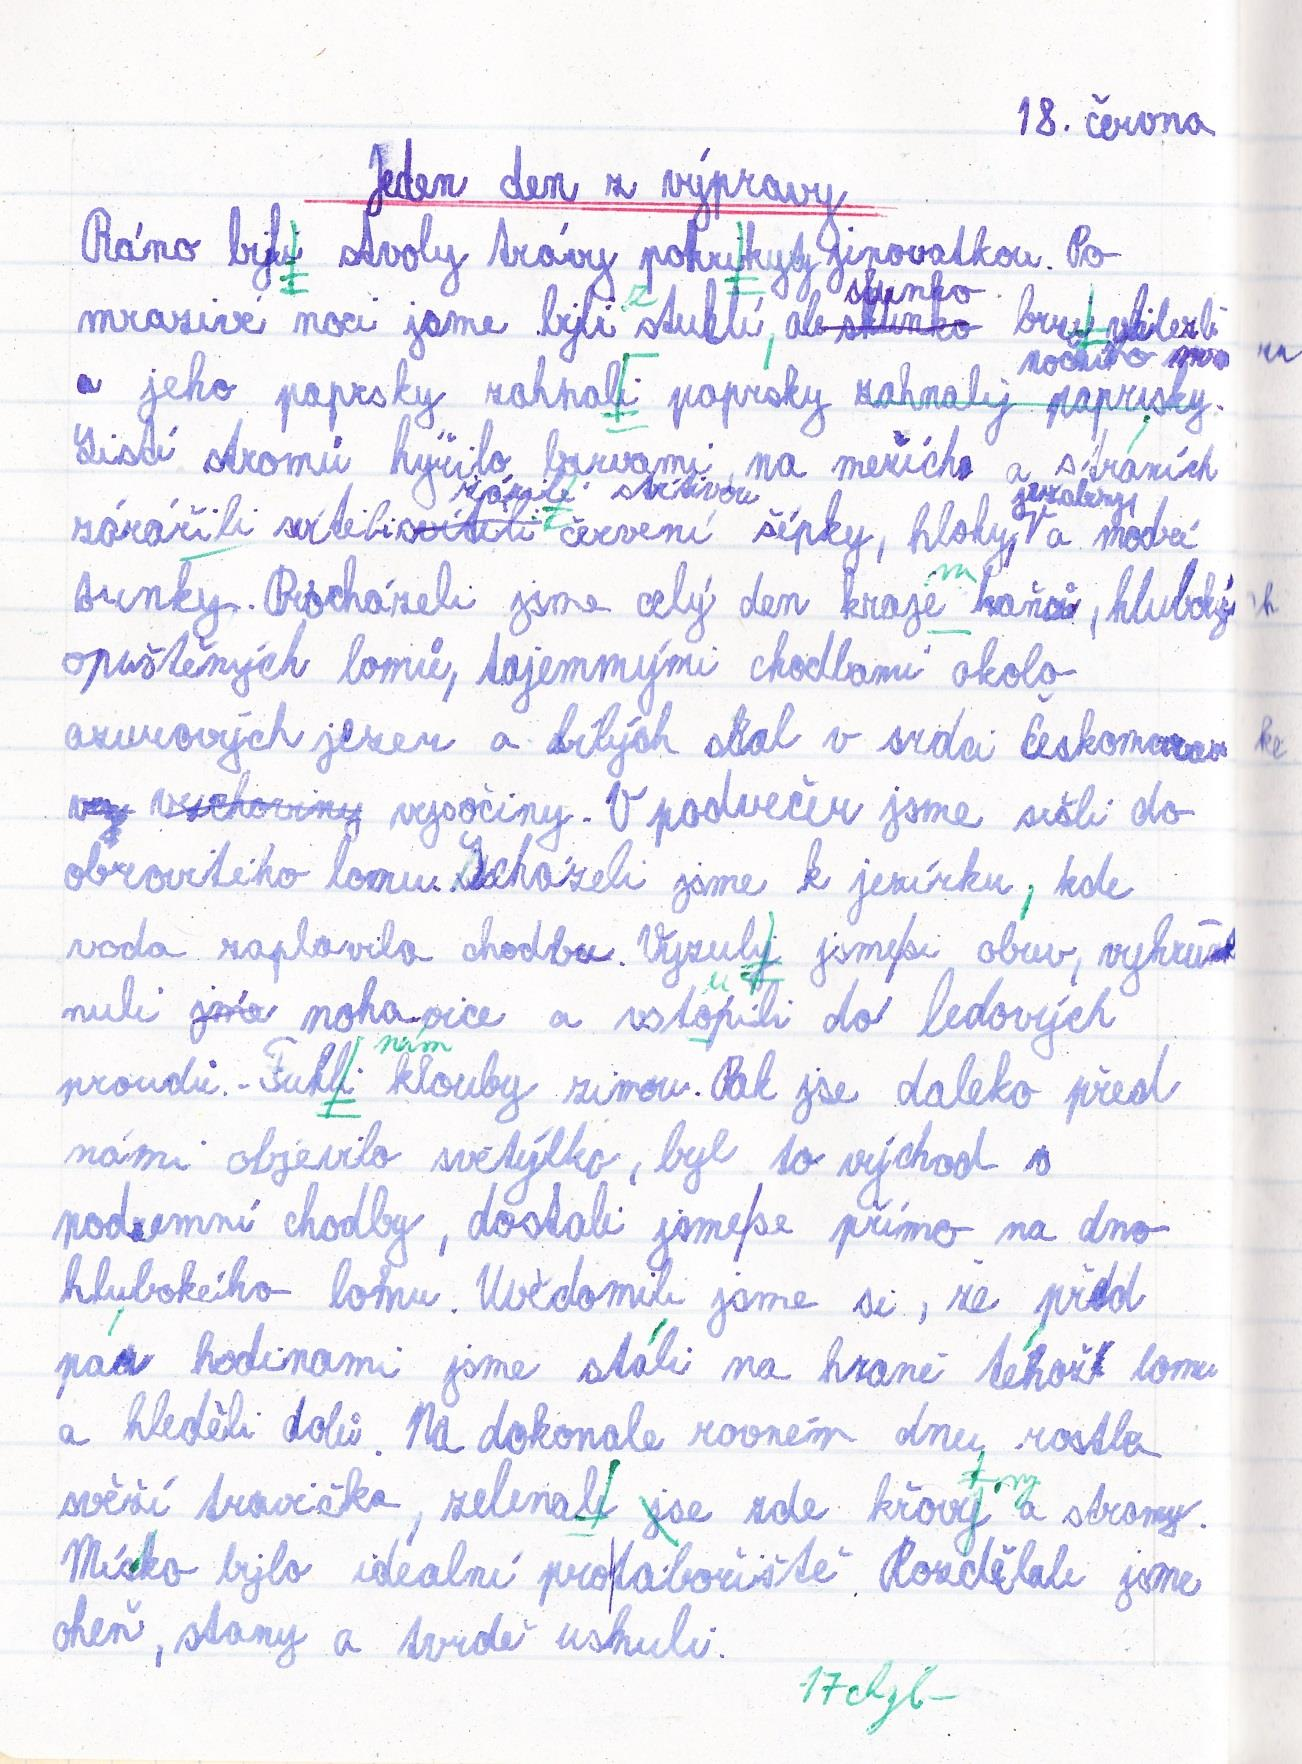 18. června
Jeden den z výpravy
Ráno byly stvoly trávy pokryty jinovatkou. Po
mrazivé noci jsme byli stuhlí, ale slunko brzy
a jeho paprsky zahnali paprsky zahnaly paprsky.
nočního
Listí stromů hýřilo barvami, na mezích a stráních
zářili stříbrou jeřabiny,
svítili červení šípky, hlohy, a modré
trnky. Procházeli jsme celý den kraje kaňonů, hlubokých
opuštěných lomů, tajemnými chodbami okolo
azurových jezer a bílých skal v srdci Českomoravské
vrchoviny vysočiny. V podvečer jsme sešli do
obrovitého lomu. Scházeli jsme k jezírku, kde
voda zaplavila chodbu. Vyzuly jsme si obuv, vyhrnuli
jsme nohavice a vstopili do ledových
proudů. Tuhli nám klouby zimou. Pak jse daleko před
námi objevilo světýlko, byl to východ s
podzemní chodby, dostali jsme se přímo na dno
hlubokého lomu. Uvědomili jsme si, že před
pár hodinami jsme stáli na hraně téhož lomu
a hleděli dolů. Na dokonale rovném dnu rostla
svěží travička, zelenali jse zde křový a stromy.
Místo bylo idealní pro tabořiště. Rozdělali jsme
oheň, stany a tvrdě usnuli.
17 chyb